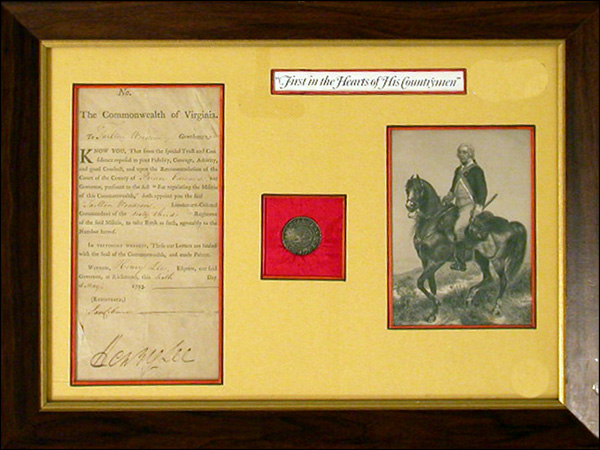 "First in the Hearts of His Countrymen"
No.
The Commonwealth of Virginia,
To Tarlton Woodson Gentleman:
KNOW YOU, That from the special Trust and Con-
fidence reposed in your Fidelity, Courage, Activity,
and good Conduct, and upon the Recommendation of the
Court of the County of Prince Edward our
Governor, pursuant to the Act "For regulating the Militia
of this Commonwealth," doth appoint you the said
Tarlton Woodson, Lieutenant-Colonel
Commandant of the Sixty third Regiment
of the said Militia, to take Rank as such, agreeably to the
Number hereof.
IN TESTIMONY WHEREOF, These our Letters are sealed
with the Seal of the Commonwealth, and made Patent.
WITNESS, Henry Lee Esquire, our said
Governor, at Richmond, this Day
of May, 1793.
(REGISTERED.)
Henry Lee